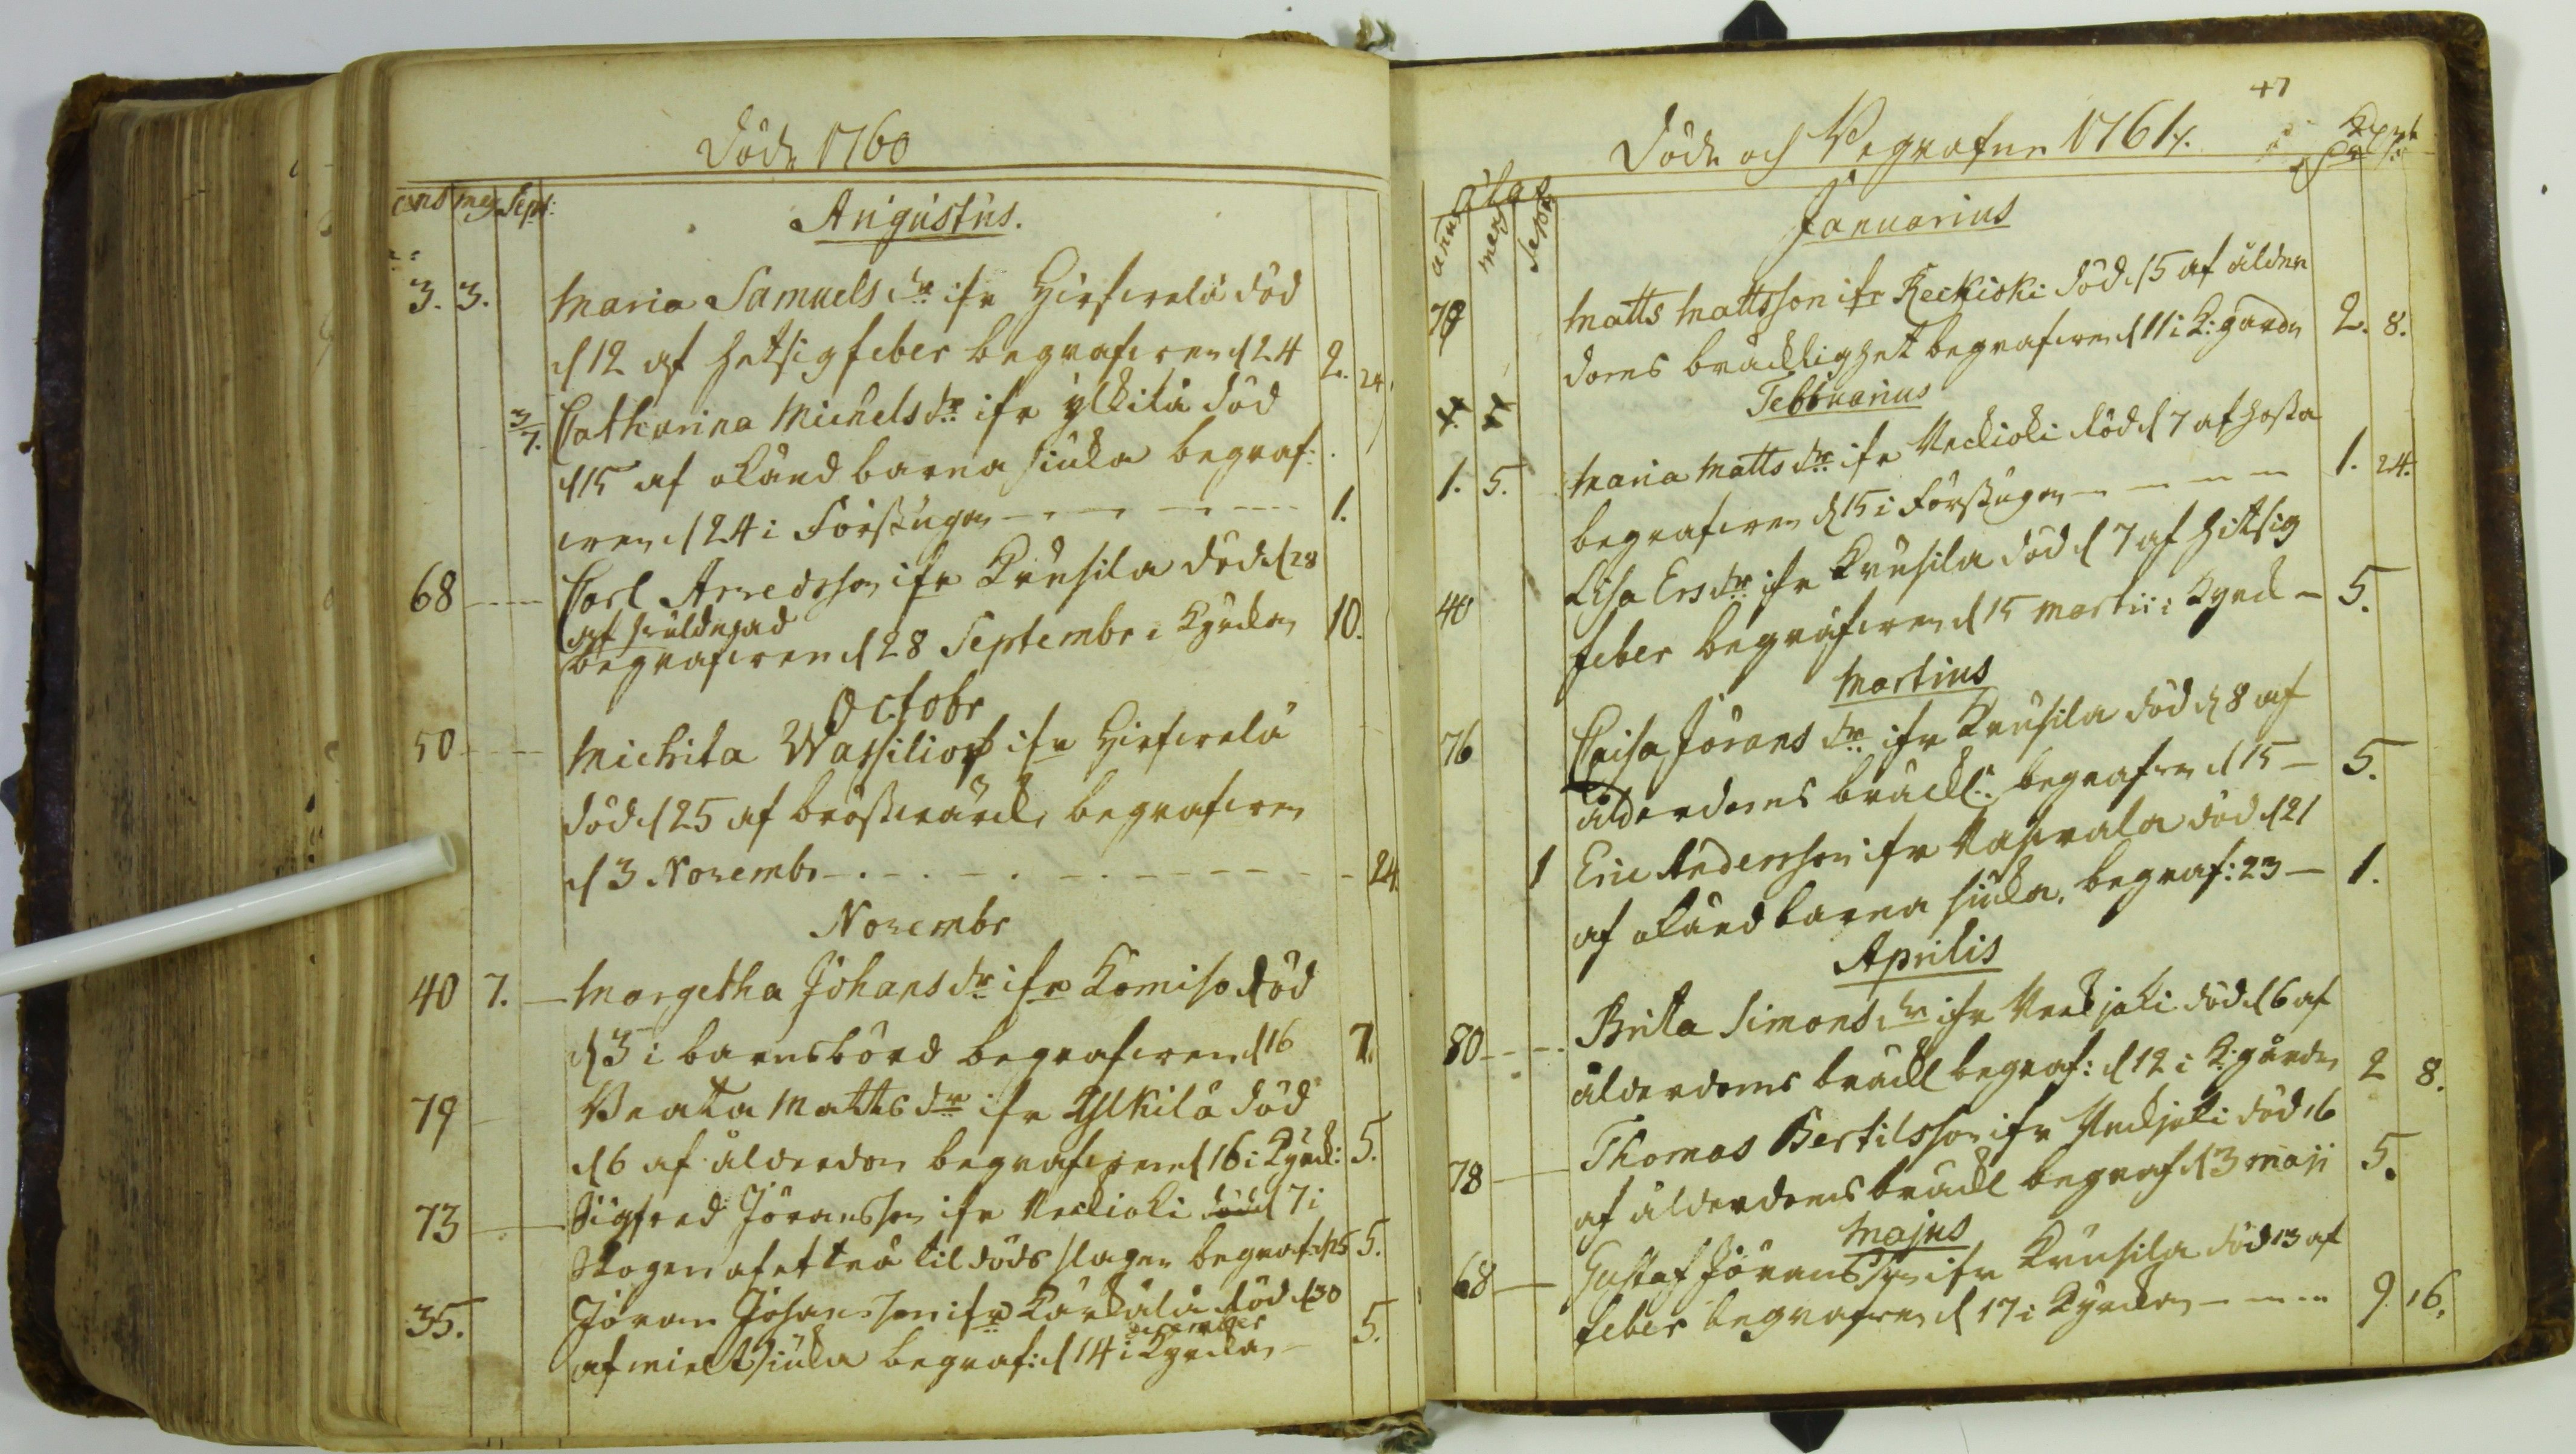 Döde 1760
ann mens Sept:
Augustus.
3. 3. Maria Samuels dr ifr Hirfvelä död
d 12 af hetsig feber begrafven d 24 2. 24.
3/7. Catharina Michels dr ifr Ylkilä död
d 15 af okänd barna siuka begraf:
ven d 24 i Förstugan 1.
68 Carl Arvedsson ifr Krusila död d 28
af håldnad
begrafven d 28 Septembr i Kyrkan 10.
Octobr
50 Michita Wassilioff ifr Hirfvelä
död d 25 af bröstvärck, begrafven
d 3 Novembr 24
Novembr
40 7. Margetha Johans dr ifr Komiso död
d 3 i barnsbörd begrafven d 16 7.
79 Beata Matts dr ifr Ylkilä död
d 6 af ålderdom begrafven d 16 i Kyrk: 5.
73 Sigfred Jöransson ifr Reckioki död d 7 i
Skogen af et trä til döds slagen begraf: d 15 5.
35. Jöran Johansson ifr Kärkälä död d 30
december
af mielt siuka begraf: d 14 i Kyrkan 5.
47
Döde och Begrafne 1761.
ann mens Sept
Januarius
78 Matts Mattsson ifr Keckioki död d 5 af ålder
doms bräcklighet begrafven d 11 i K:gården 2. 8.
Februarius
1. 5. Maria Matts dr ifr Reckioki död d 7 af hosta
begrafven d 15 i Förstugan 1. 24.
40 Lisa Ers dr ifr Krusila död d 7 af hitsig
feber begrafven d 15 Martii i Kyrk 5.
Martius
76 Caisa Jörans dr ifr Krusila död d 8 af
ålderdoms bräckl: begrafven d 15 5.
1 Eric Andersson ifr död d 21
af okänd barna siuka. begraf: 23 1.
Aprilis
80 Brita Simons dr ifr Reckjoki död d 6 af
ålderdoms bräckl begraf: d 12 i K:gården 2 8.
78 Thomas Bertilsson ifr Reckjoki död 16
af ålderdoms bräckl begraf d 3 Maji 5.
Majus
68 Gustaf Jöransson ifr Krusila död 13 af
feber begrafven d 17 i Kyrkan 9 16.